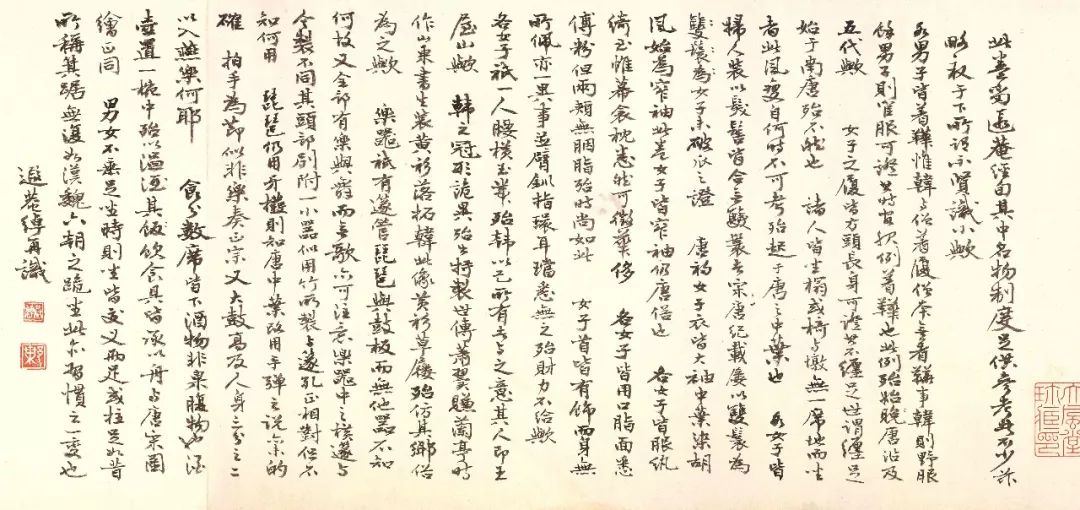 此卷當遐菴經旬其中名物制度足供參考者不少
略識于下所謂不賢識小歟
各男子皆着鞾惟韓与僧着履僧本無着鞾事韓則野服
餘男子則官服可證其時官服例着鞾也此例殆始晚唐沿及
五代歟 女子之履皆方頭長身可證其不纏足世謂纏足
始于南唐殆不然也 諸人皆坐榻或椅与墩無一席地而坐
者此風變自何時不可考殆起于唐之中葉也 各女子皆
婦人裝以鬟髻首全無雙鬟裝者宋唐紀載屢以雙鬟為
雙鬟為女子未破瓜之證 唐初女子衣皆大袖中葉染胡
風始為窄袖此卷女子皆窄袖仍唐俗也 各女子皆服紈
綺至帷幕衾枕悉然可徵華侈 各女子皆用口脂面悉
傅粉但兩頰無胭脂殆時尚如此 女子首皆有飾而身無
所佩亦一異事並臂釧指環耳璫悉無之殆財力不給歟
各女子祇一人腰橫玉帶殆韓以己所有者与之意其人即王
屋山歟 韓之冠形詭異殆出特製世傳蕭翼賺蘭亭時
作山東書生裝黃衫落拓韓此像黃衫草屨殆仿其鄉俗
為之歟 樂器祇有篴管琵琶與鼓板而無他器不知
何故又全部有樂與舞而無歌亦可注意樂器中之橫篴与
今製不同其頭部別附一小器似用竹所製与篴孔正相對但不
知何用 琵琶仍用斤撥則知唐中葉改用手彈之說亦不的
確 拍手為節似非樂奏正宗又大鼓高及人身三分之二
以入燕樂何耶 食分數席皆下酒物非果腹物也酒
壺置一椀中殆以溫酒其飯飲食具皆承以舟与唐宋圖
繪正同 男女不垂足坐時則坐皆交叉兩足或拄足如昔
所稱箕踞無復如漢魏六朝之跪坐此亦習慣之一變也
遐菴綽再識